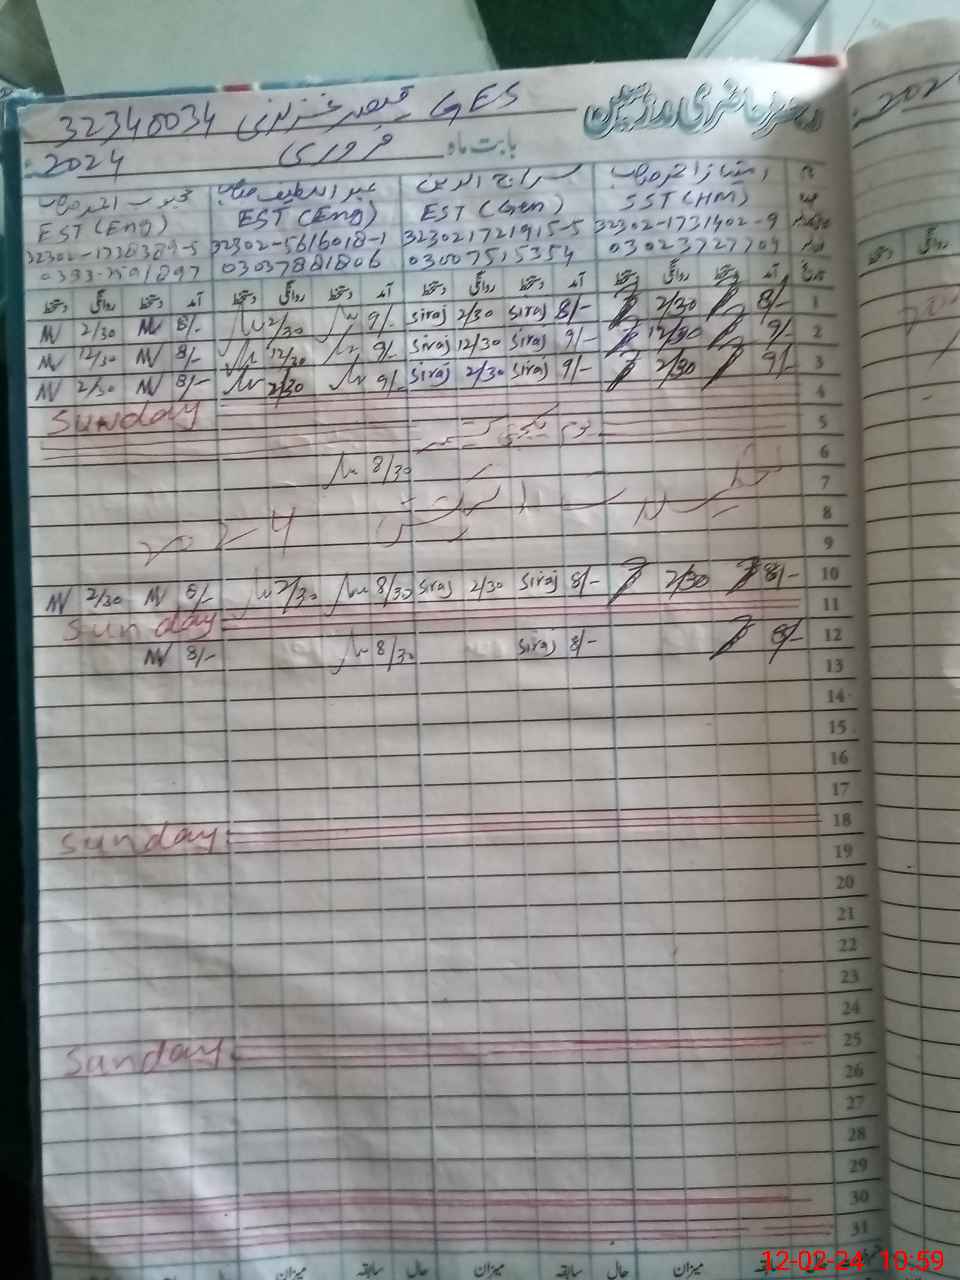 رجسٹر حاضری مدرسین
GES قیصر غزلانی 32340034
بابت ماہ فروری 2024
امتیاز احمد صاحب سراج الدین عبد اللطیف صاحب محبوب احمد صاحب
SST (HM) EST (Gen) EST (Eng) EST (Eng)
32302-1731402-9 323021721915-5 32302-5616018-1 32302-1738389-5
03023727709 03007515354 03037881806
آمد دستخط روانگی دستخط آمد دستخط روانگی دستخط آمد دستخط روانگی دستخط آمد دستخط روانگی دستخط
1 8/- 2/30 8/- Siraj 2/30 Siraj 9/- 2/30 8/- 2/30
2 9/- 12/30 9/- Siraj 12/30 Siraj 9/- 12/30 8/- 12/30
3 9/- 2/30 9/- Siraj 2/30 Siraj 9/- 2/30 8/- 2/30
4 Sunday
5 یوم یکجہتی کشمیر
6 8/30
7
8 2024
9
10 8/- 2/30 8/- Siraj 2/30 Siraj 8/30 2/30 8/- 2/30
11 Sunday
12 8/- 8/- Siraj 8/30 8/-
13
14
15
16
17
18 Sunday
19
20
21
22
23
24
25 Sunday
26
27
28
29
30
31
سابقہ حال میزان سابقہ حال میزان سابقہ حال میزان
12-02-24 10:59